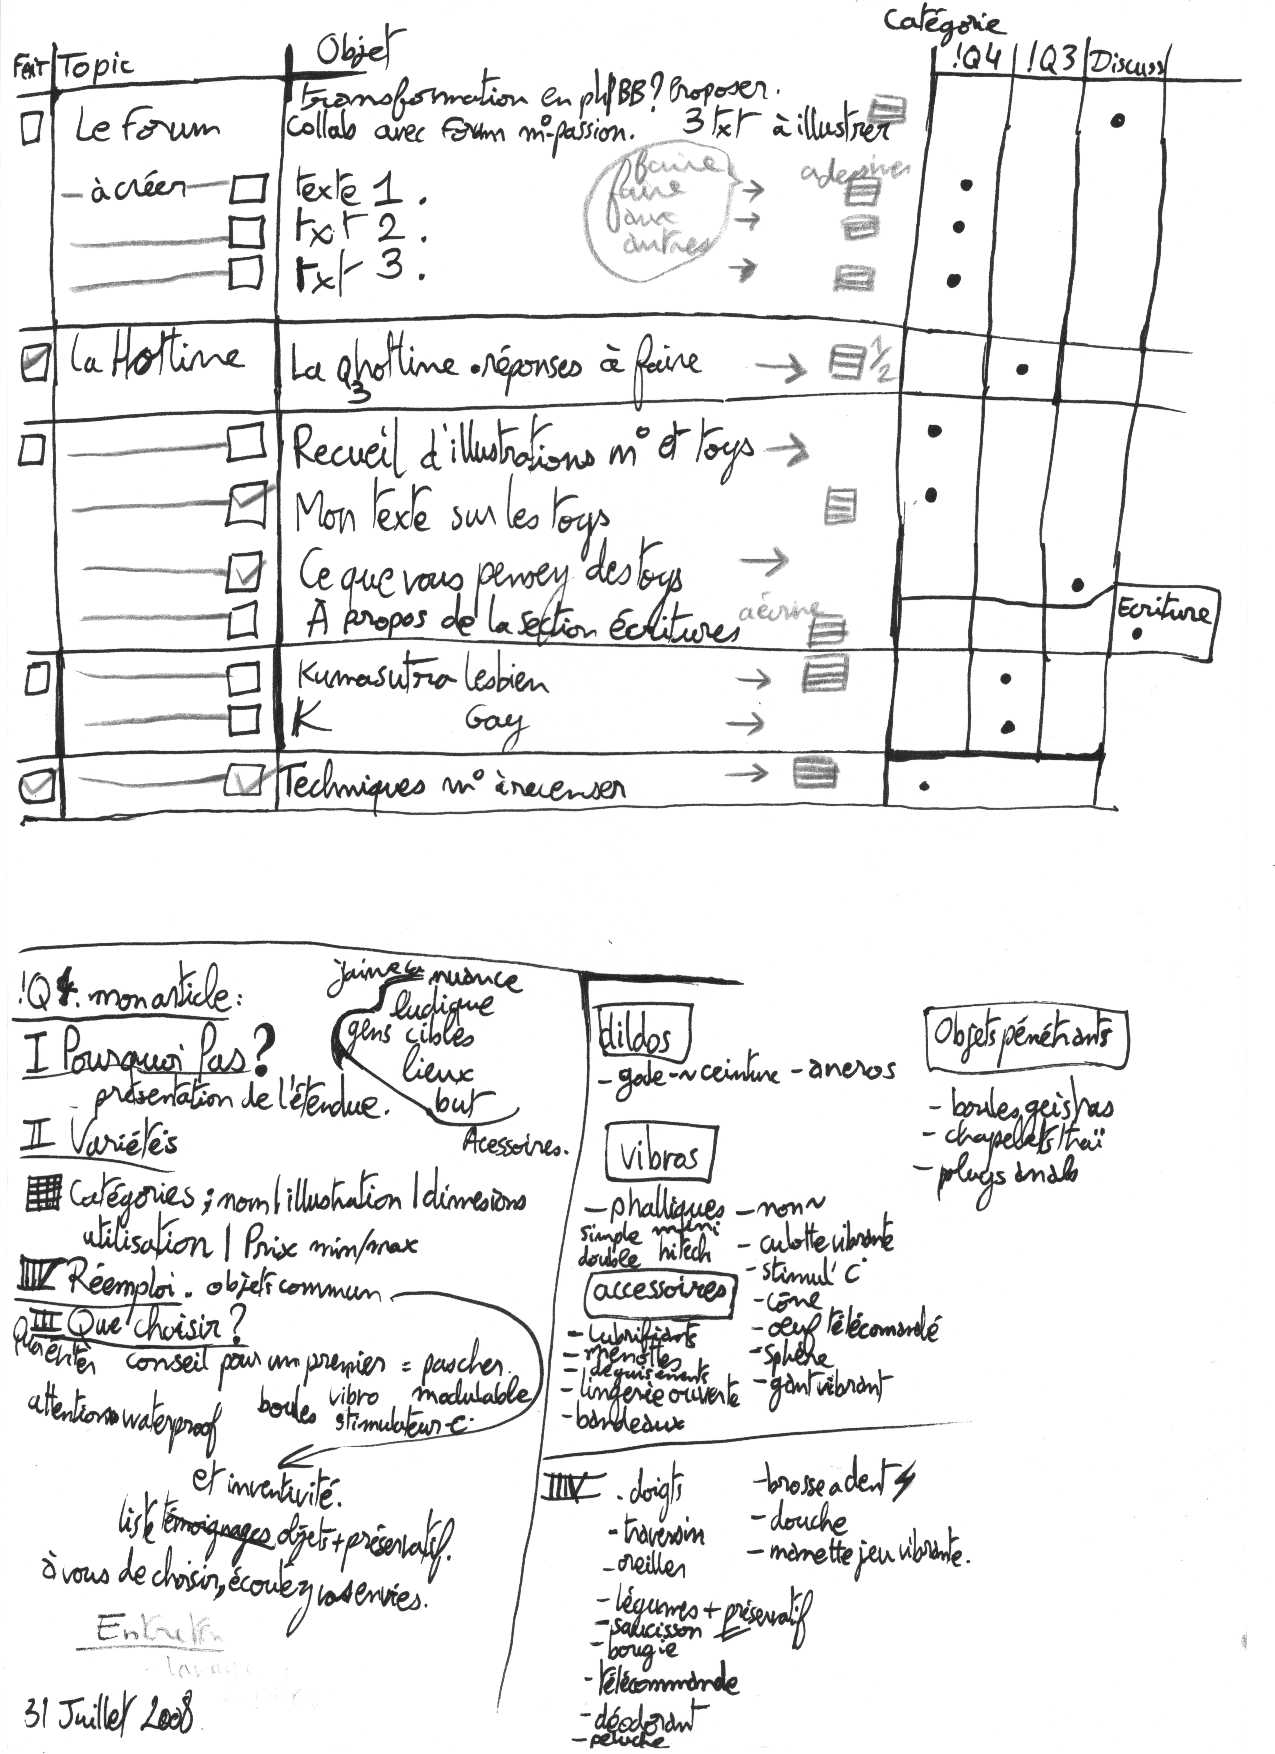 Catégorie
Fait Topic Objet !Q4 !Q3 Discuss
transformation en phpBB? Proposer.
Le Forum collab avec Forum m°-passion. 3 txt à illustrer
- à créer texte 1.
txt 2.
txt 3.
faire
faire
aux
autres
La Hotline La hotline. réponses à faire 1/2
Q3
Recueil d'illustrations m° et toys
Mon texte sur les toys
Ce que vous pensez des toys
À propos de la section écritures à écrire Ecriture
Kumasutra lesbien
K Gay
Techniques m° à recenser
!Q4. mon article:
nuance
ludique
gens ciblés
lieux
but
Acessoires.
I Pourquoi Pas?
présentation de l'étendue.
II Variétés
Catégories; nom | illustration | dimesions
utilisation | Prix min/max
IV Réemploi. objets commun
III Que choisir?
conseil pour un premier = pas cher.
attention waterproof boules vibro modulable
stimulateur-C.
et inventivité.
liste témoignages objets + préservatif.
à vous de choisir, écoutez vos envies.
Entretien
31 Juillet 2008
dildos
- gode-~ceinture - aneros
vibros
- phalliques
simple mini
double hitech
- non~
- culotte vibrante
- stimul' C
- cône
- oeuf télécomandé
- sphère
- gant vibrant
accessoires
- lubrifiants
- menottes
- déguisements
- lingerie ouverte
- bandeaux
Objets pénétrants
- boules geishas
- chapelets thaï
- plugs anals
IV . doigts
- traversin
- oreiller
- légumes + préservatif
- saucisson
- bougie
- télécommande
- déodorant
- peluche
- brosse a dent
- douche
- manette jeu vibrante.